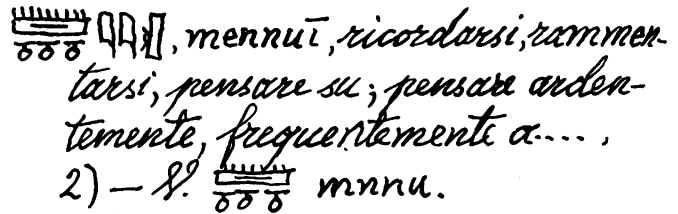 , mennuī, ricordarsi, rammen-
tarsi, pensare su; pensare arden-
temente, frequentemente a....,
2) — V. mnnu.